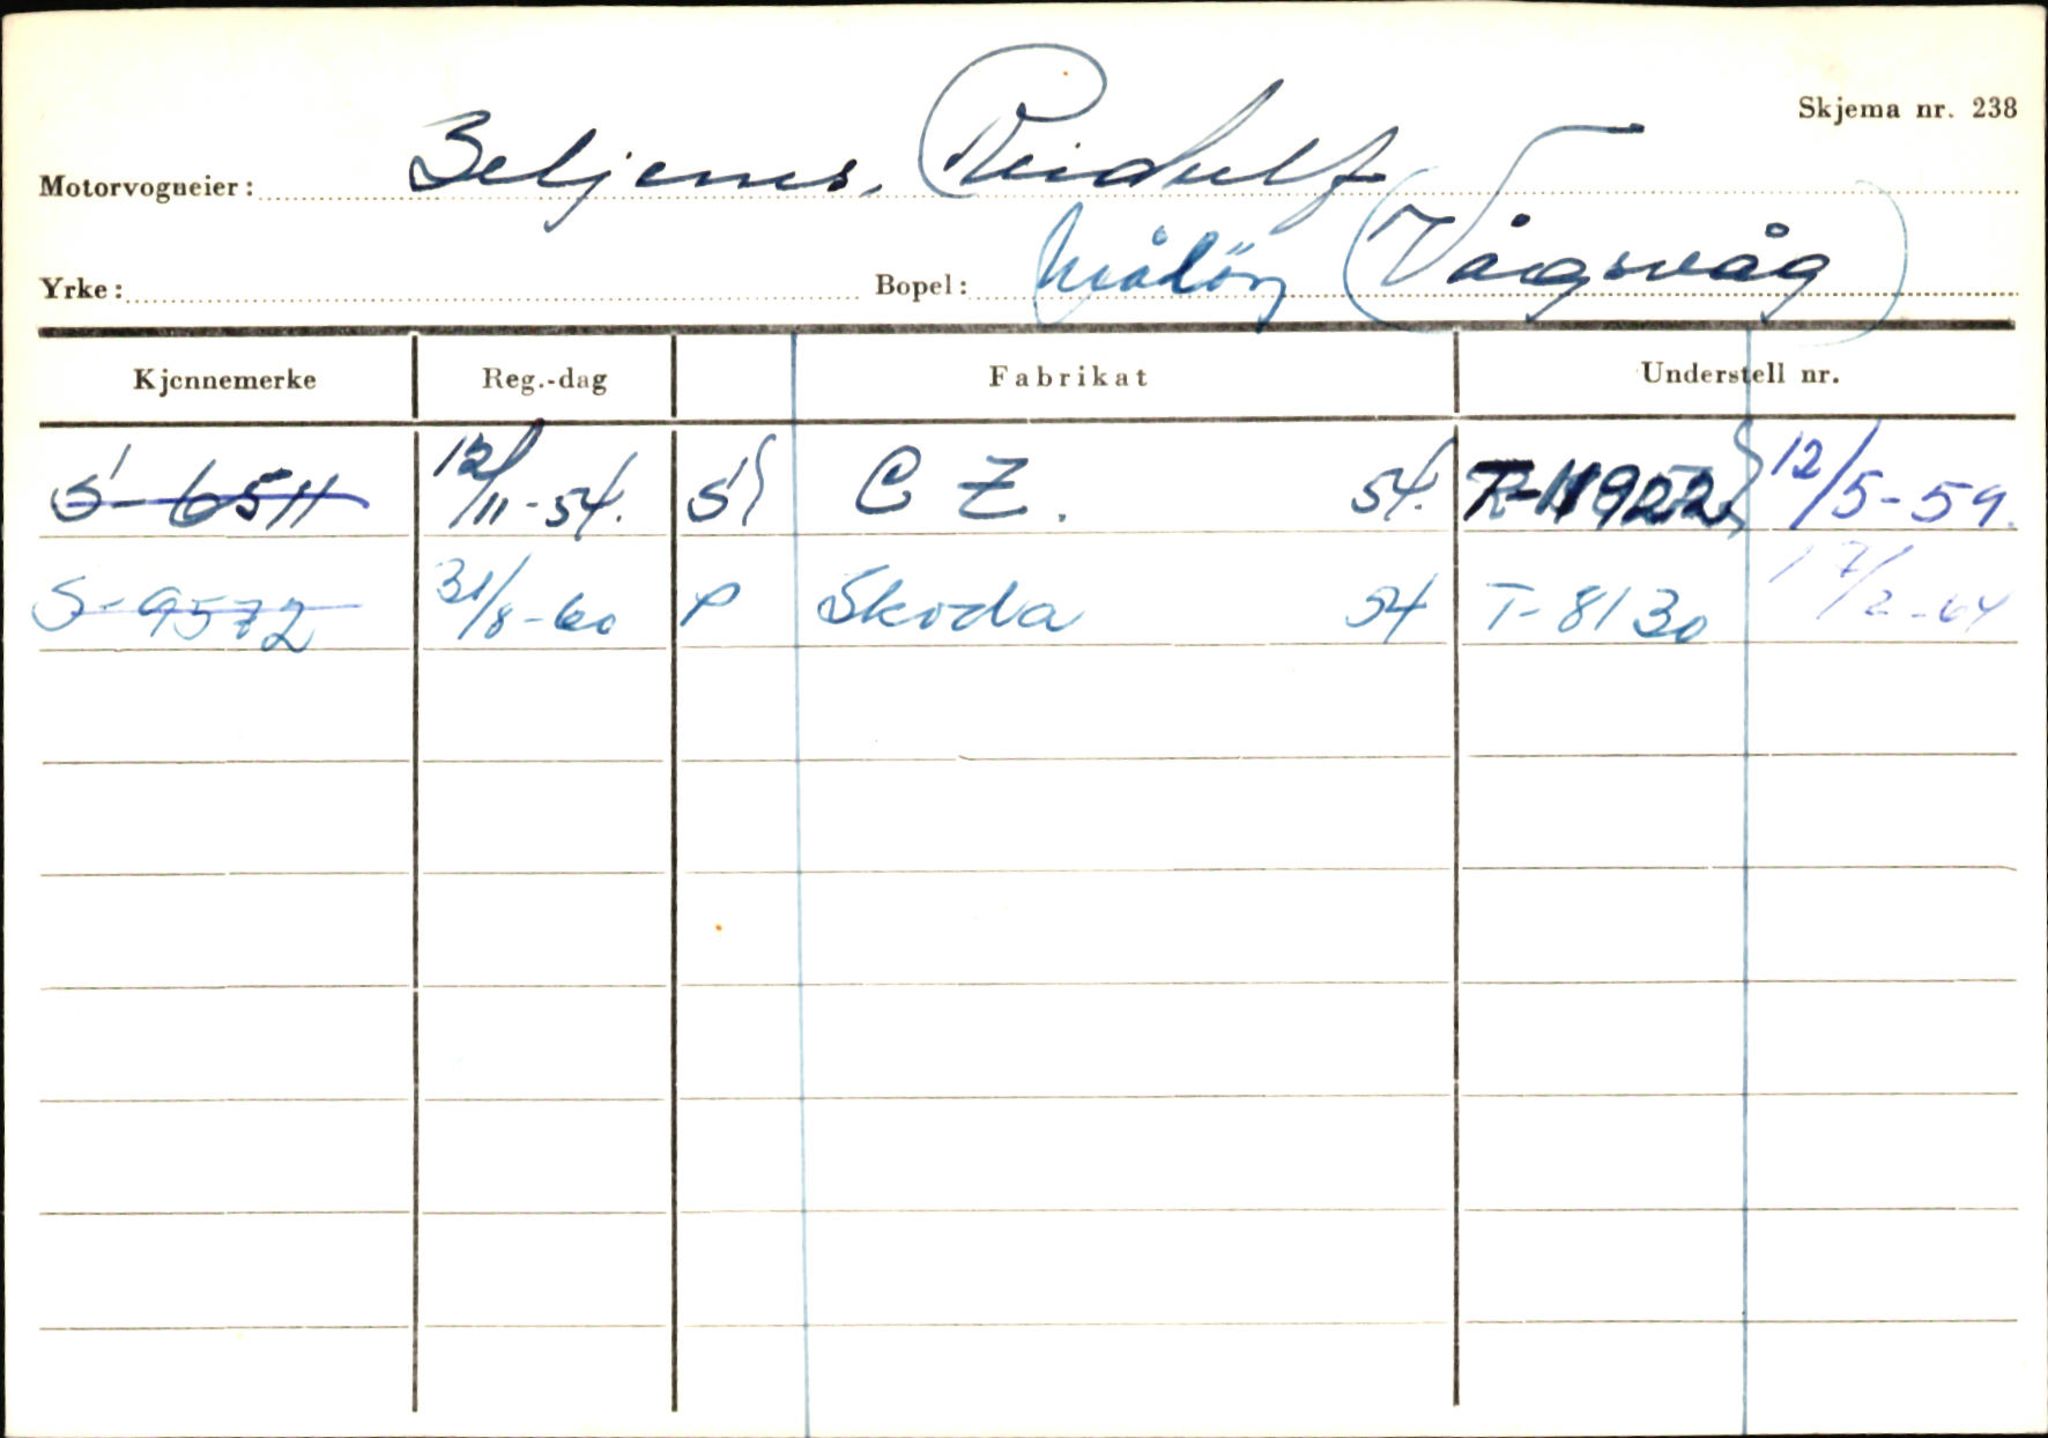 Skjema nr. 238
Motorvogneier: Beljenes, Reidulf
Yrke: Bopel: Måløy (Vågsvåg)
Kjennemerke Reg.-dag Fabrikat Understell nr.
S-6511 12/11-54. S C Z. 54. 11922 12/5-59.
S-9572 31/8-60 P Skoda 54 T-8130 17/2-64